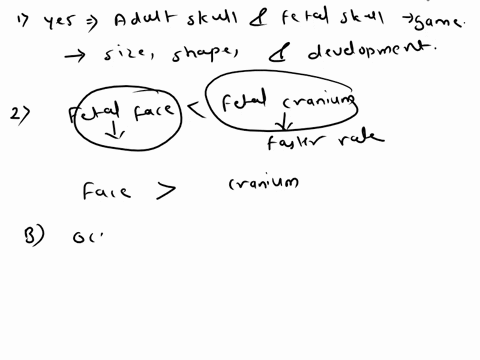 1) yes => Adult skull & fetal skull → same
→ size, shape, & development.
2) Fetal face < Fetal cranium
faster rate
Face > cranium
3) oc